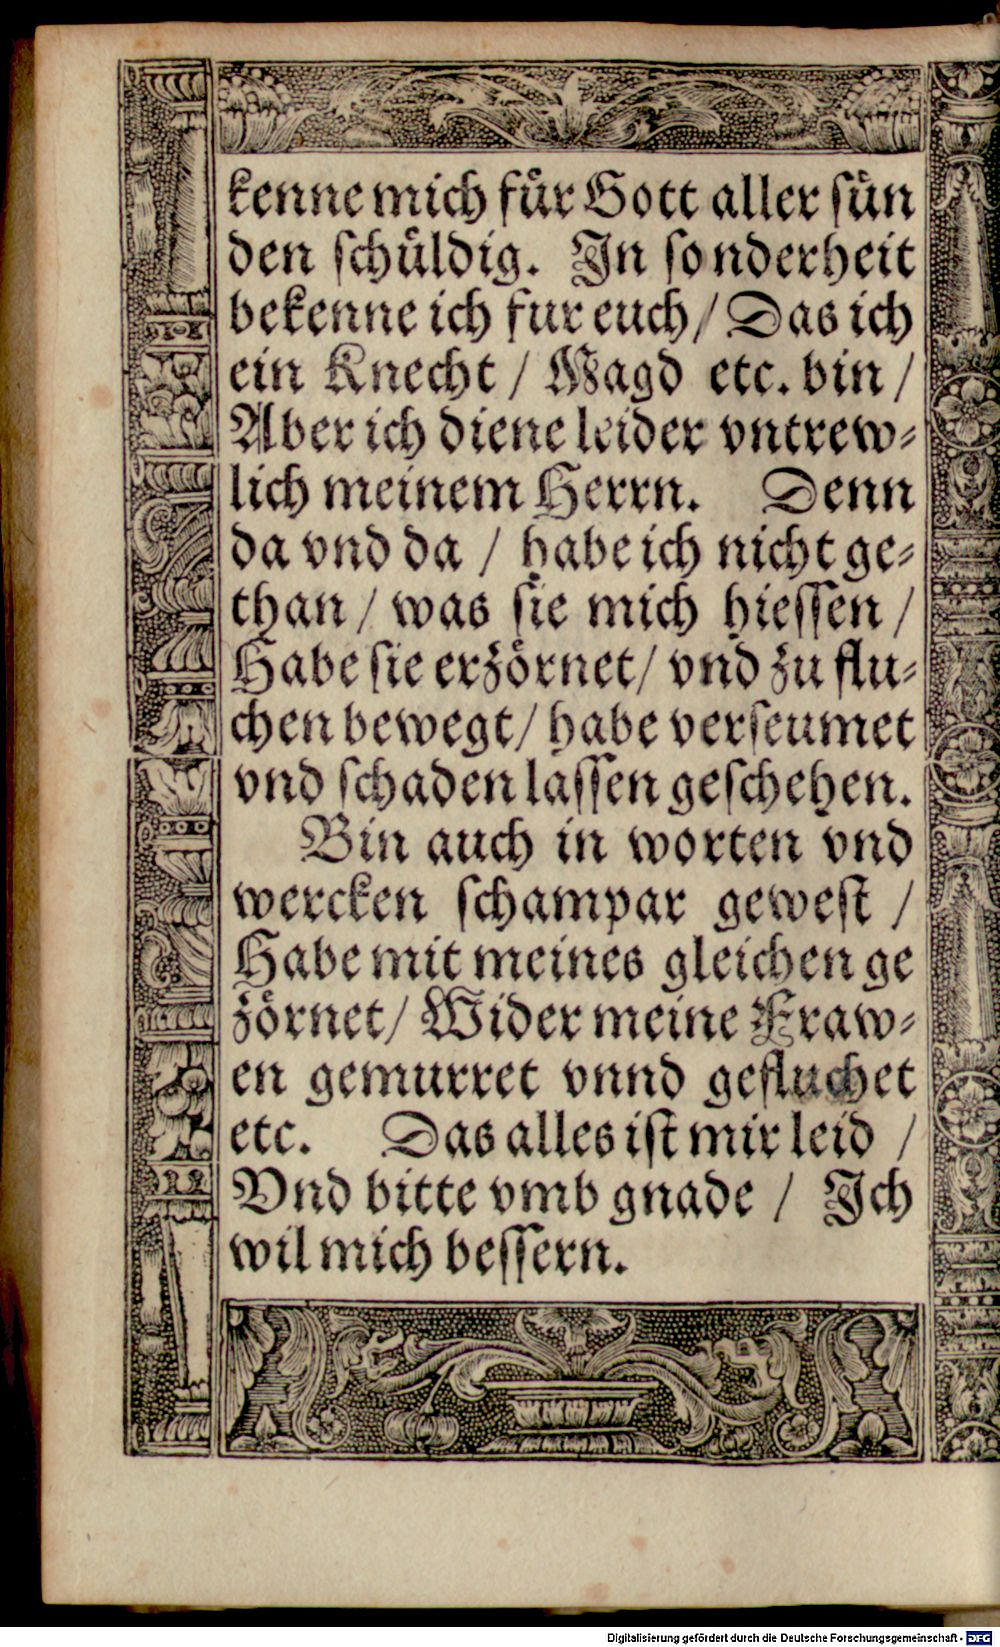 kenne mich für Gott aller sün
den schüldig. In sonderheit
bekenne ich fur euch / Das ich
ein Knecht / Magd etc. bin /
Aber ich diene leider vntrew⸗
lich meinem Herrn. Denn
da vnd da / habe ich nicht ge⸗
than / was sie mich hiessen /
Habe sie erzörnet / vnd zu flu⸗
chen bewegt / habe verseumet
vnd schaden lassen geschehen.
Bin auch in worten vnd
wercken schampar gewest /
Habe mit meines gleichen ge
zörnet / Wider meine Fraw⸗
en gemurret vnnd gefluchet
etc. Das alles ist mir leid /
Vnd bitte vmb gnade / Ich
wil mich bessern.
Digitalisierung gefördert durch die Deutsche Forschungsgemeinschaft - DFG